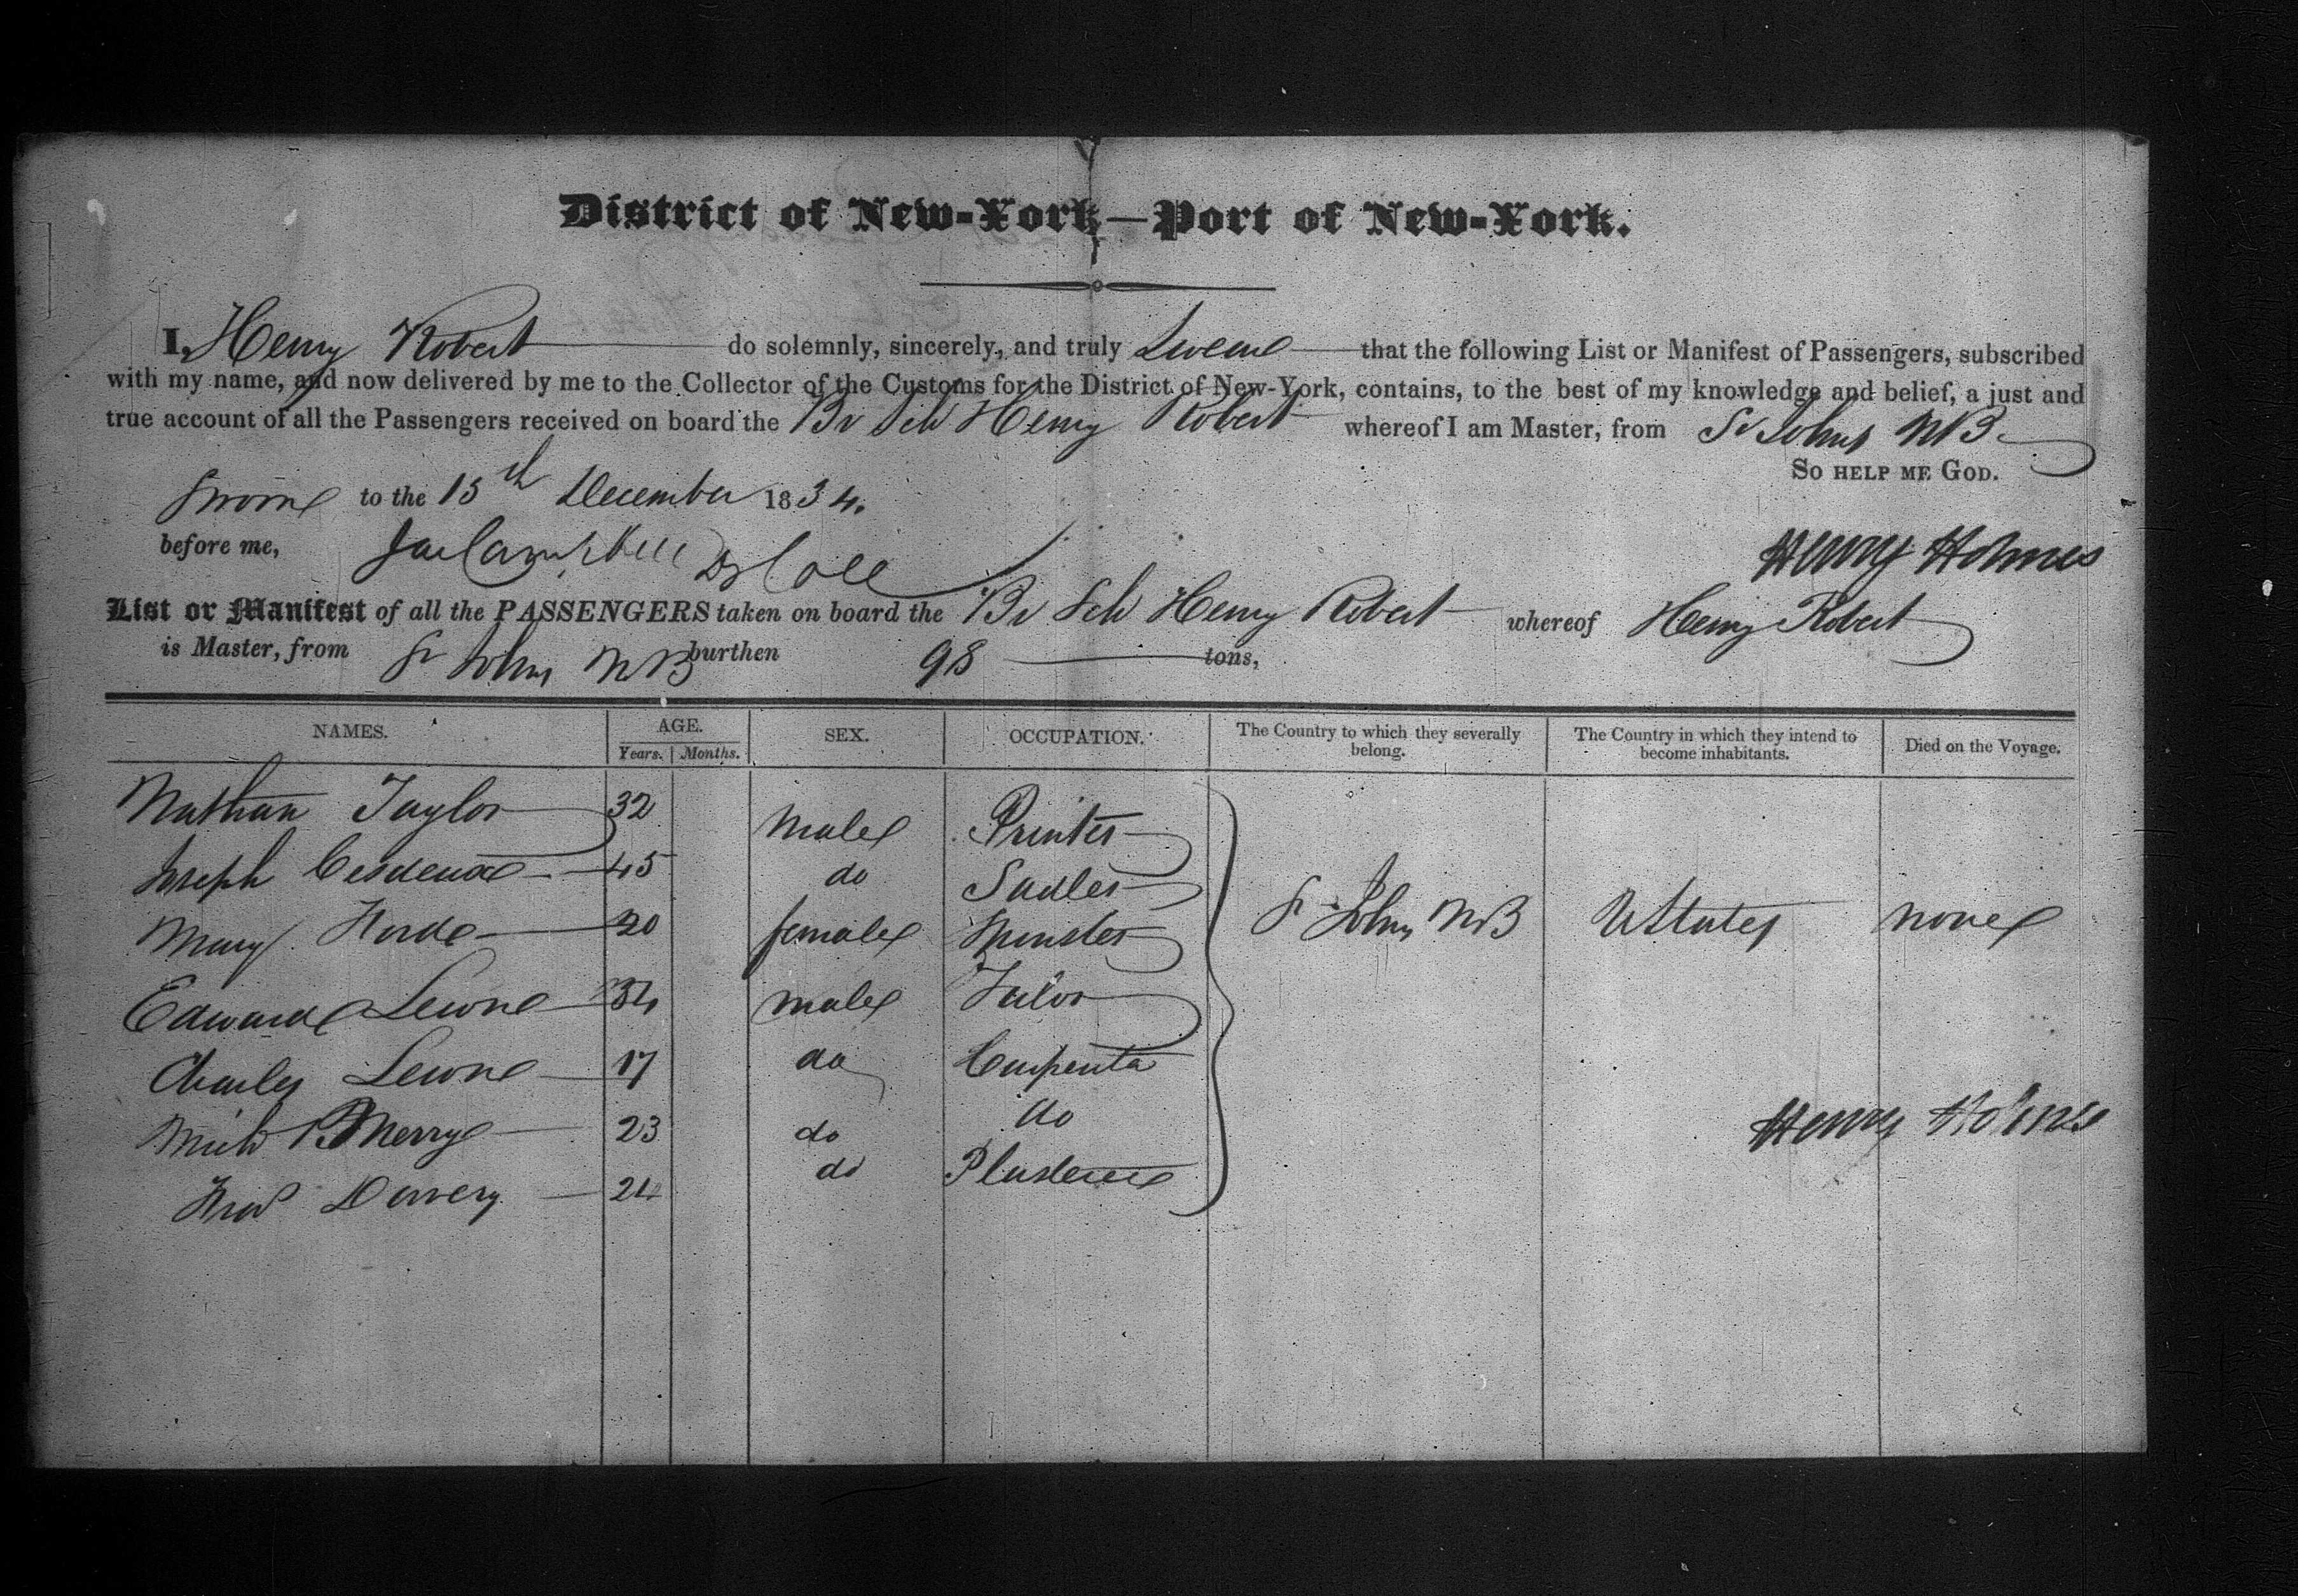 District of New-York—Port of New-York.
I, Henry Robert do solemnly, sincerely, and truly Swear that the following List or Manifest of Passengers, subscribed
with my name, and now delivered by me to the Collector of the Customs for the District of New-York, contains, to the best of my knowledge and belief, a just and
true account of all the Passengers received on board the Br Sch Henry Robert whereof I am Master, from St Johns NB
So help me God.
Sworn to the 15th December 1834.
before me, Campbell D Coll
Henry Holmes
List or Manifest of all the PASSENGERS taken on board the Br Sch Henry Robert whereof Henry Robert
is Master, from St Johns NB burthen 98 tons,
NAMES. AGE. SEX. OCCUPATION. The Country to which they severally belong. The Country in which they intend to become inhabitants. Died on the Voyage.
Years. Months.
Nathan Taylor 32 male Printer
Joseph 45 do Sadler
Mary 20 female Spinster St Johns NB UStates none
Edward Lewne 34 male Tailor
Charles Lewne 17 do Carpenter
Merry 23 do do
24 do Plasterer
Henry Holmes